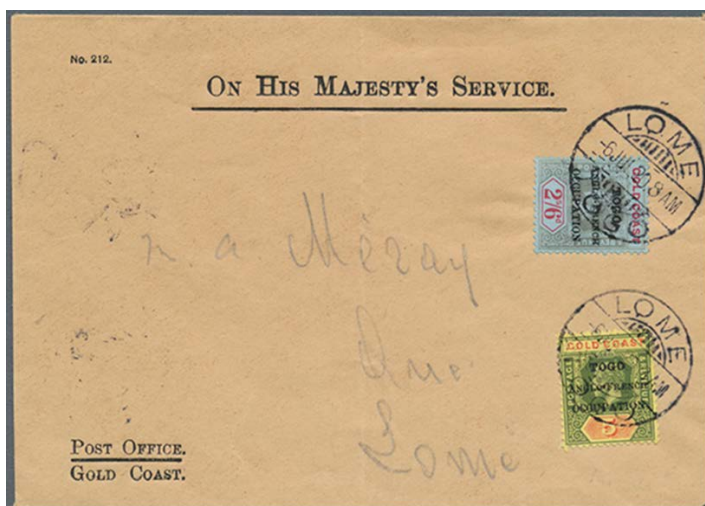 No. 212.
ON HIS MAJESTY'S SERVICE.
LOME
8 AM
GOLD COAST
TOGO
ANGLO-FRENCH
OCCUPATION
2/6
a. Méray
Lomé
LOME
GOLD COAST
TOGO
ANGLO-FRENCH
OCCUPATION
POST OFFICE.
GOLD COAST.